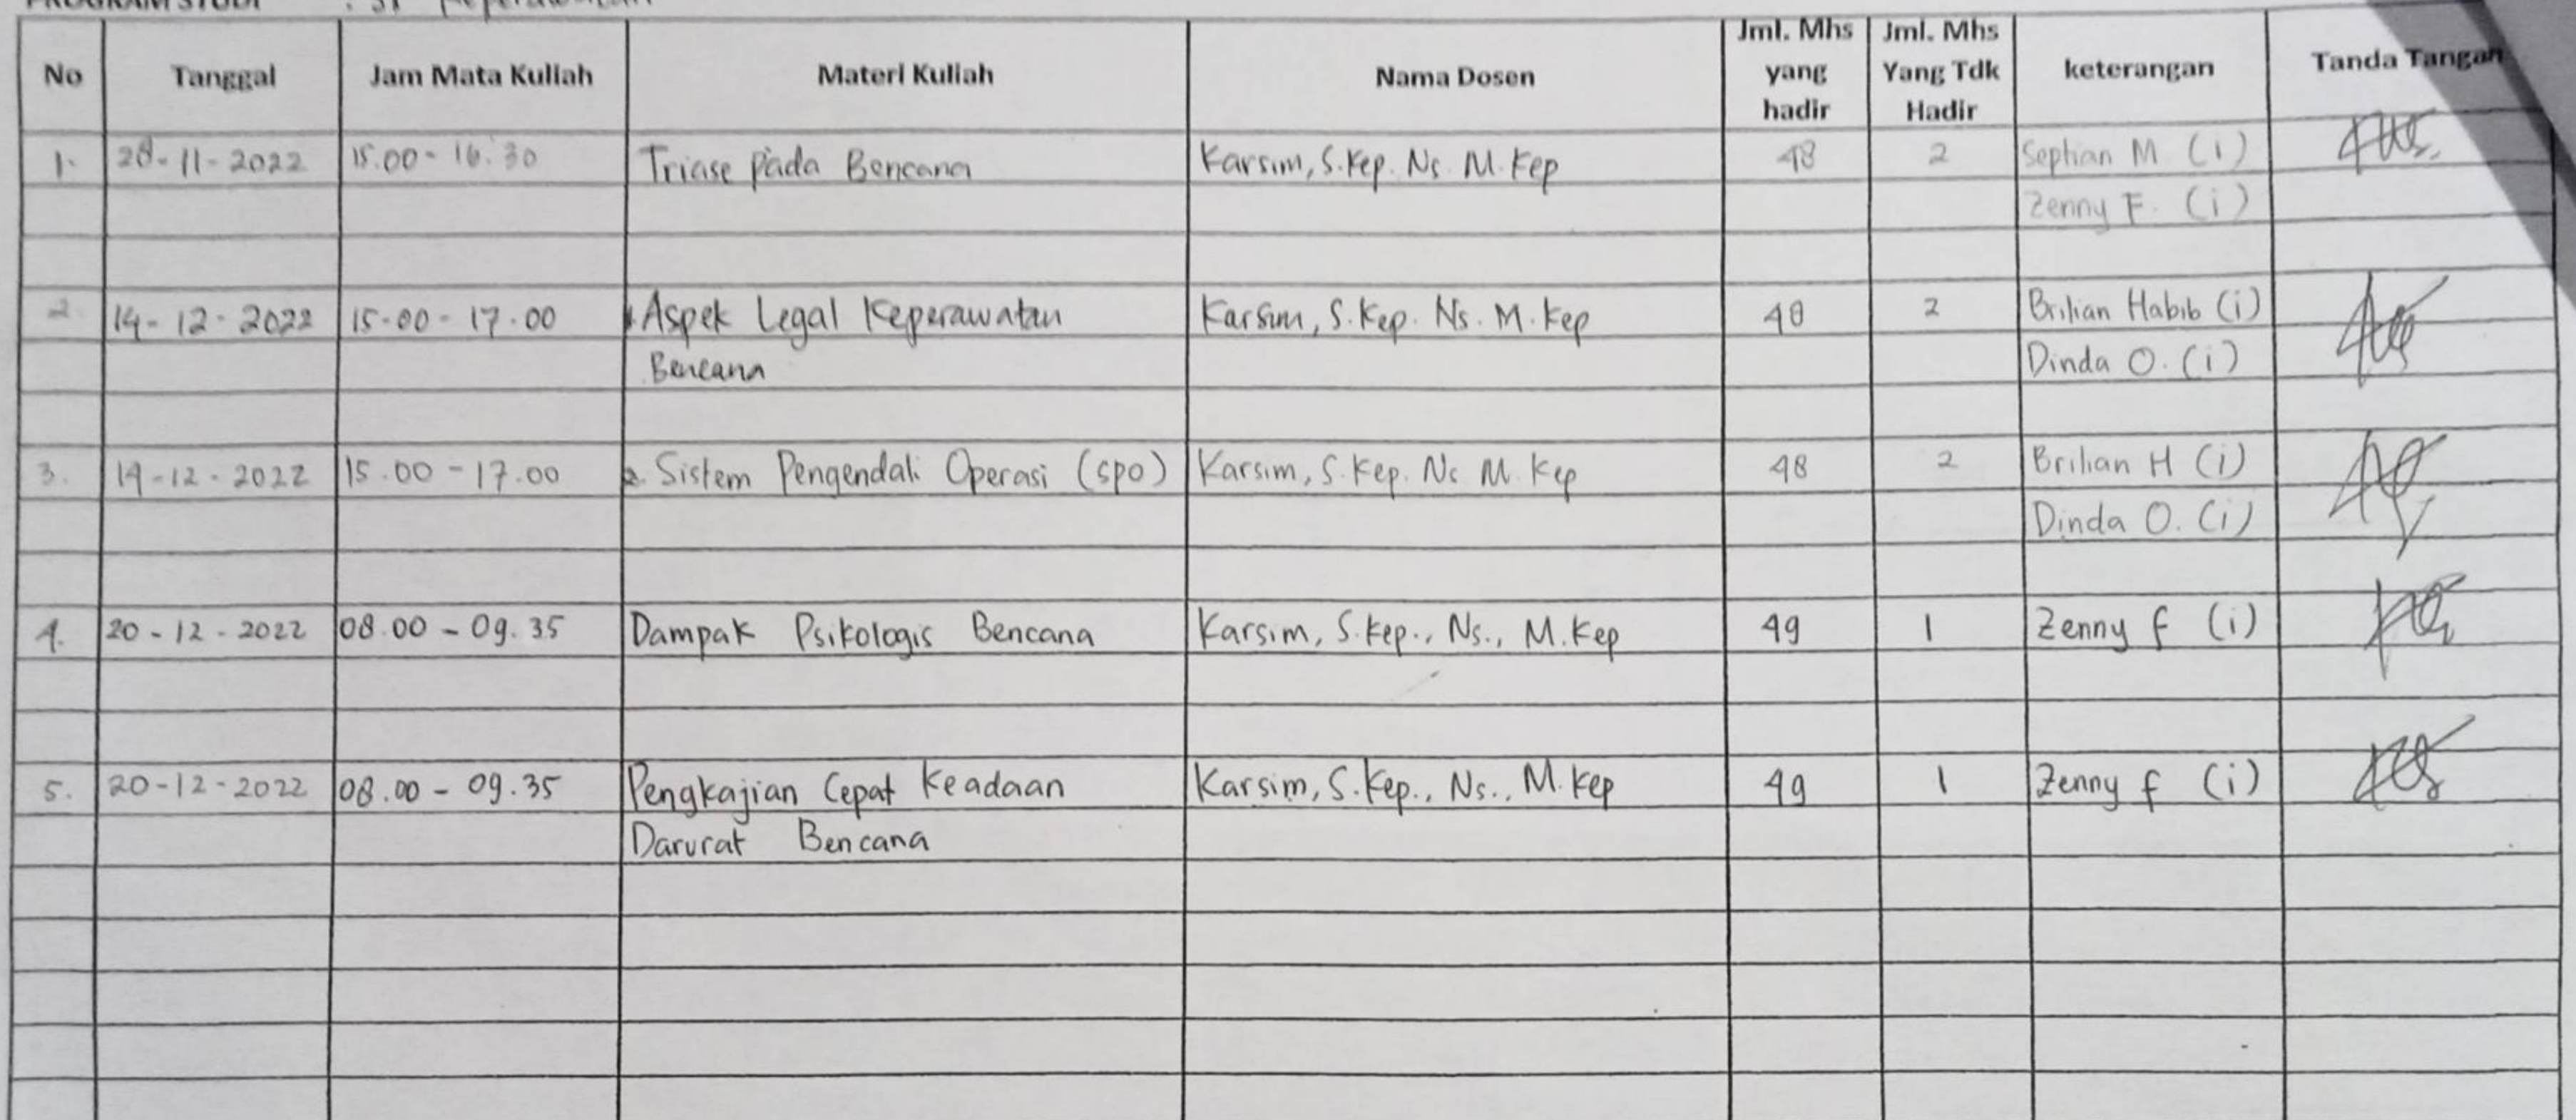 PROGRAM STUDI : S1 Keperawatan
No Tanggal Jam Mata Kuliah Materi Kuliah Nama Dosen Jml. Mhs yang hadir Jml. Mhs Yang Tdk Hadir keterangan Tanda Tangan
1. 28-11-2022 15.00-16.30 Triase pada Bencana Karsim, S.Kep. Ns. M.Kep 48 2 Septian M (i)
Zenny F. (i)
2. 14-12-2022 15.00-17.00 1. Aspek Legal Keperawatan Karsim, S.Kep. Ns. M.Kep 48 2 Brilian Habib (i)
Bencana Dinda O. (i)
3. 14-12-2022 15.00-17.00 2. Sistem Pengendali Operasi (SPO) Karsim, S.Kep. Ns M.Kep 48 2 Brilian H (i)
Dinda O. (i)
4. 20-12-2022 08.00-09.35 Dampak Psikologis Bencana Karsim, S.Kep., Ns., M.Kep 49 1 Zenny f (i)
5. 20-12-2022 08.00-09.35 Pengkajian Cepat Keadaan Karsim, S.Kep., Ns., M.Kep 49 1 Zenny f (i)
Darurat Bencana